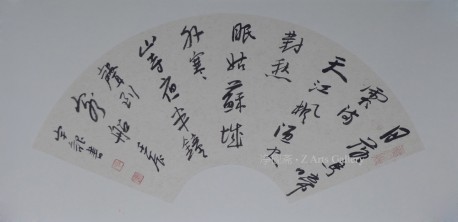 月落烏啼
霜滿
天江楓漁火
對愁
眠姑蘇城
外寒
山寺夜半鐘
聲到
船
壬辰
書
Z Arts Gallery